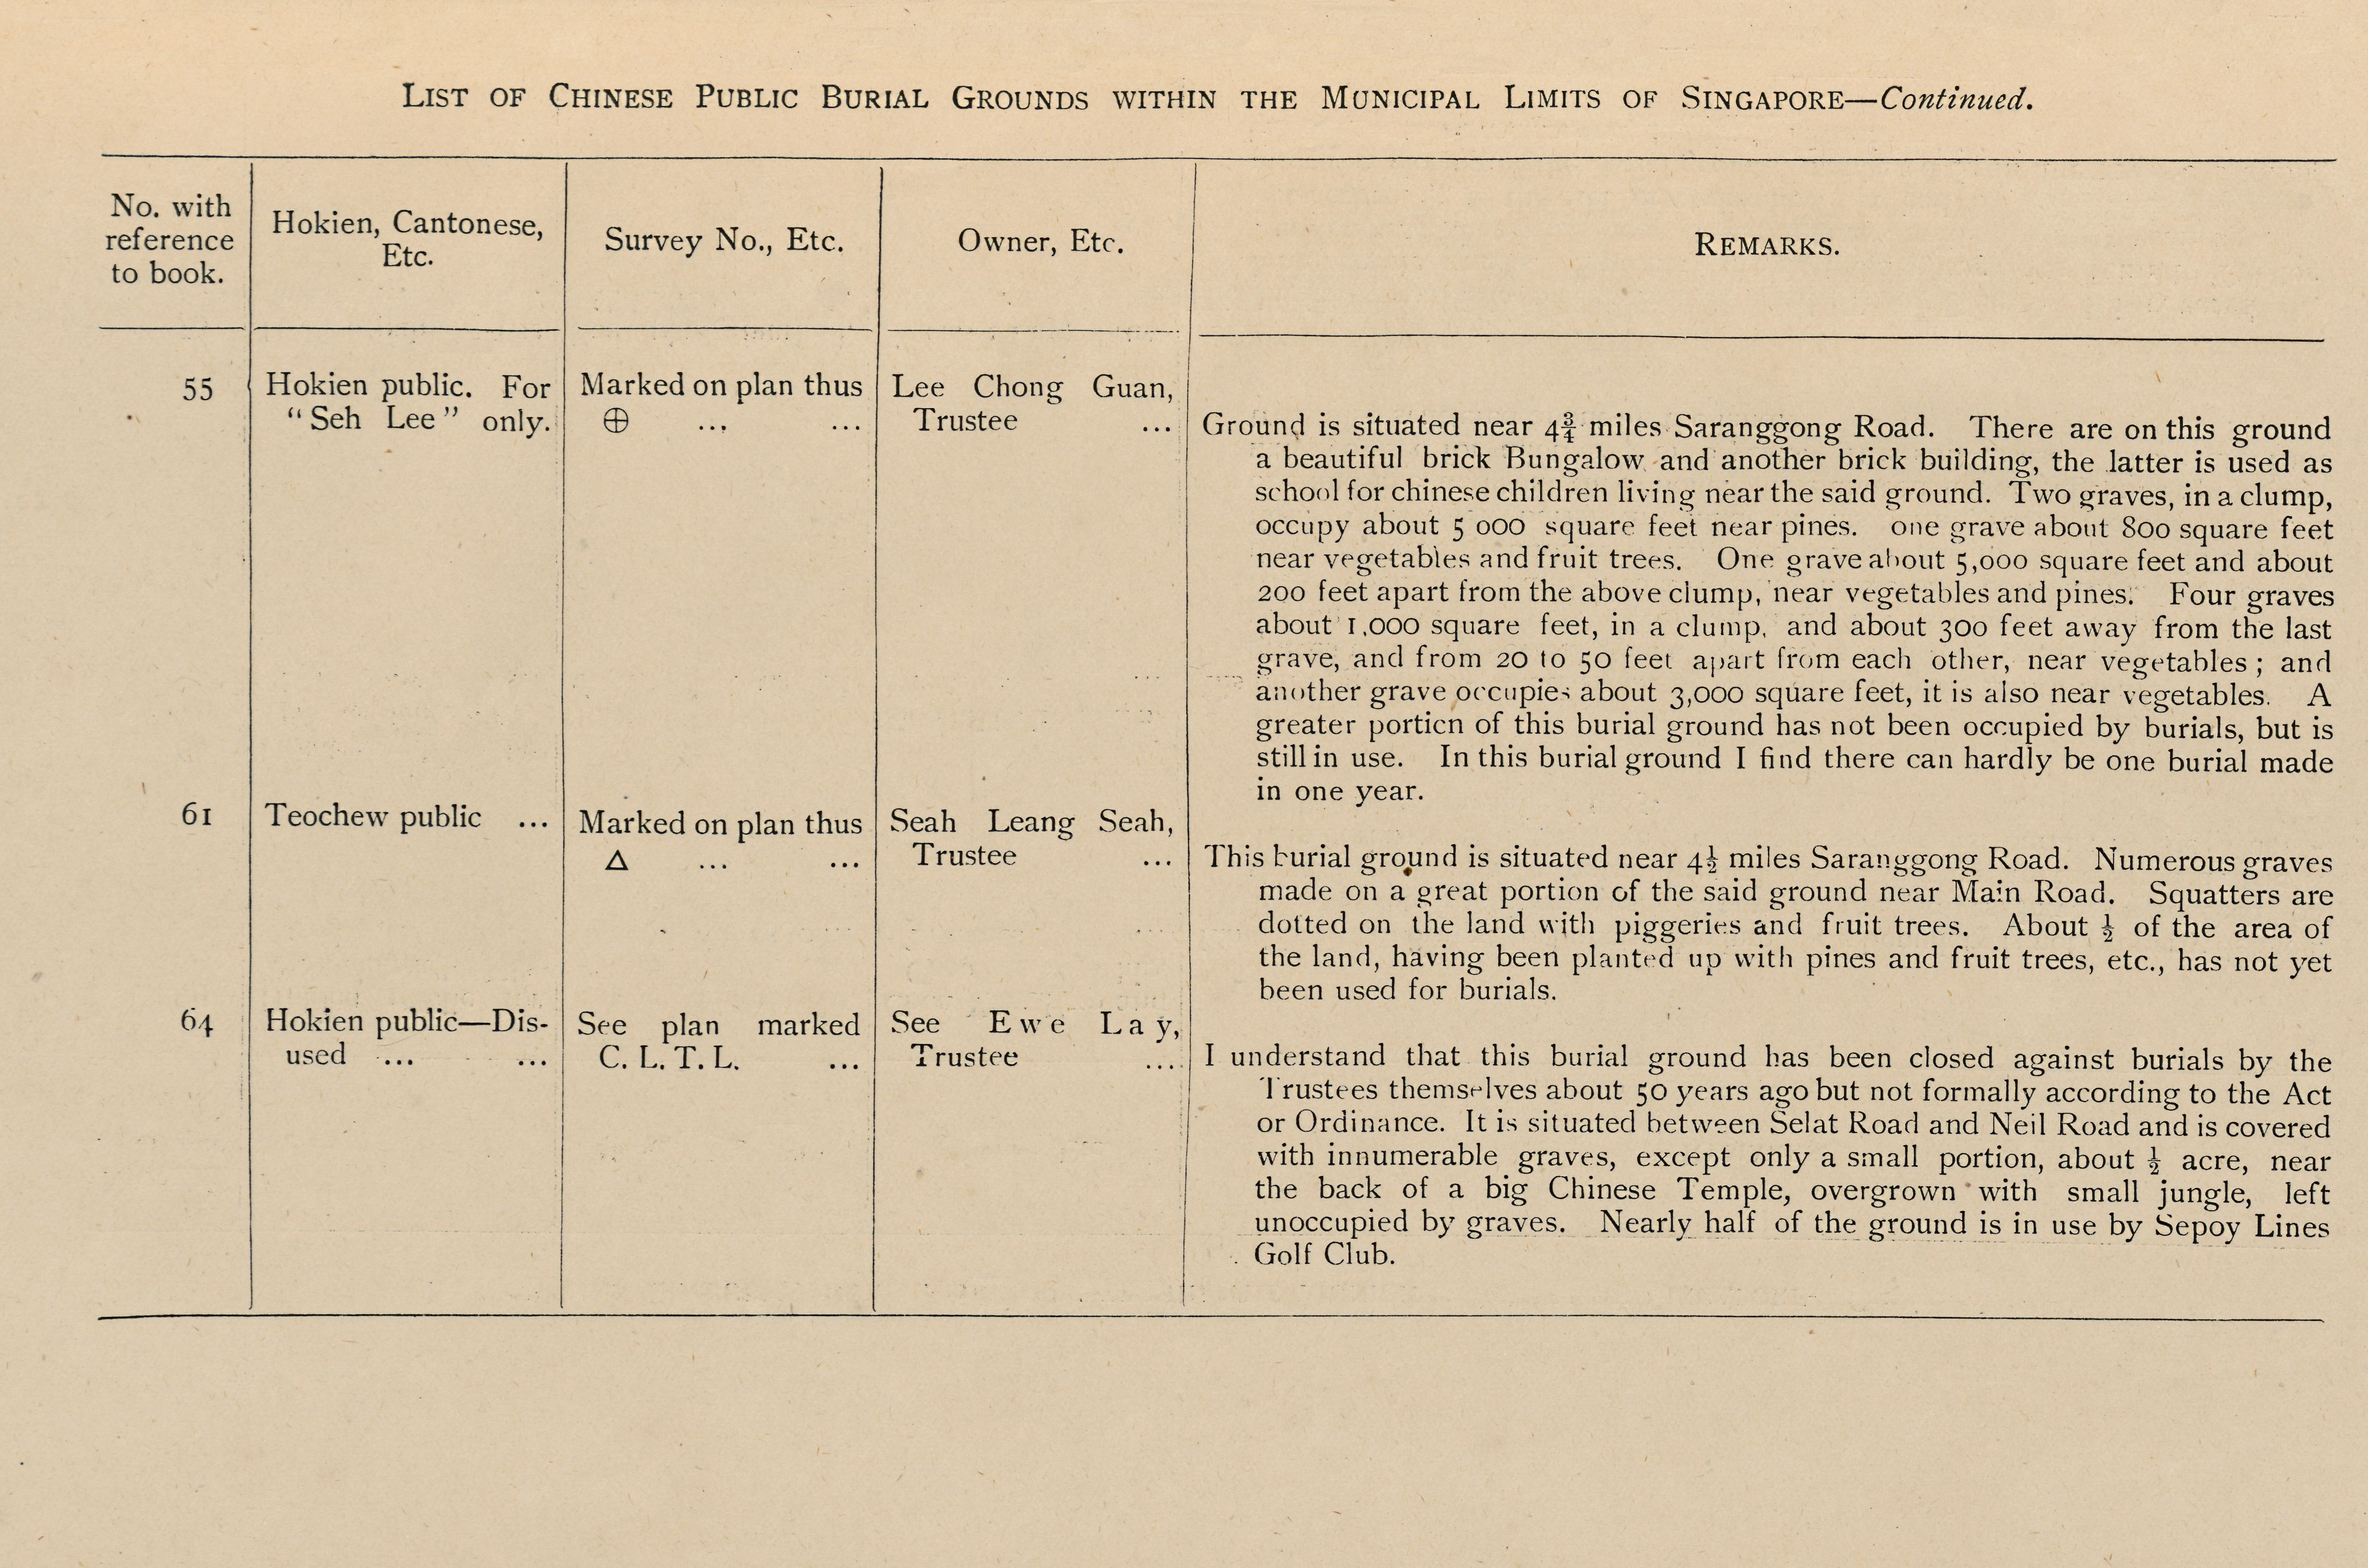 LIST OF CHINESE PUBLIC BURIAL GROUNDS WITHIN THE MUNICIPAL LIMITS OF SINGAPORE—Continued.
No. with
reference
to book.
Hokien, Cantonese,
Etc.
Survey No., Etc.
Owner, Etc.
REMARKS.
55
Hokien public. For
"Seh Lee" only.
Marked on plan thus
⊕ ... ...
Lee Chong Guan,
Trustee ...
Ground is situated near 4¾ miles Saranggong Road. There are on this ground
a beautiful brick Bungalow and another brick building, the latter is used as
school for chinese children living near the said ground. Two graves, in a clump,
occupy about 5 000 square feet near pines. one grave about 800 square feet
near vegetables and fruit trees. One grave about 5,000 square feet and about
200 feet apart from the above clump, near vegetables and pines. Four graves
about 1,000 square feet, in a clump, and about 300 feet away from the last
grave, and from 20 to 50 feet apart from each other, near vegetables; and
another grave occupies about 3,000 square feet, it is also near vegetables. A
greater portion of this burial ground has not been occupied by burials, but is
still in use. In this burial ground I find there can hardly be one burial made
in one year.
61
Teochew public ...
Marked on plan thus
Δ ... ...
Seah Leang Seah,
Trustee ...
This burial ground is situated near 4½ miles Saranggong Road. Numerous graves
made on a great portion of the said ground near Main Road. Squatters are
dotted on the land with piggeries and fruit trees. About ½ of the area of
the land, having been planted up with pines and fruit trees, etc., has not yet
been used for burials.
64
Hokien public—Dis-
used ... ...
See plan marked
C. L. T. L. ...
See Ewe Lay,
Trustee ...
I understand that this burial ground has been closed against burials by the
Trustees themselves about 50 years ago but not formally according to the Act
or Ordinance. It is situated between Selat Road and Neil Road and is covered
with innumerable graves, except only a small portion, about ½ acre, near
the back of a big Chinese Temple, overgrown with small jungle, left
unoccupied by graves. Nearly half of the ground is in use by Sepoy Lines
Golf Club.